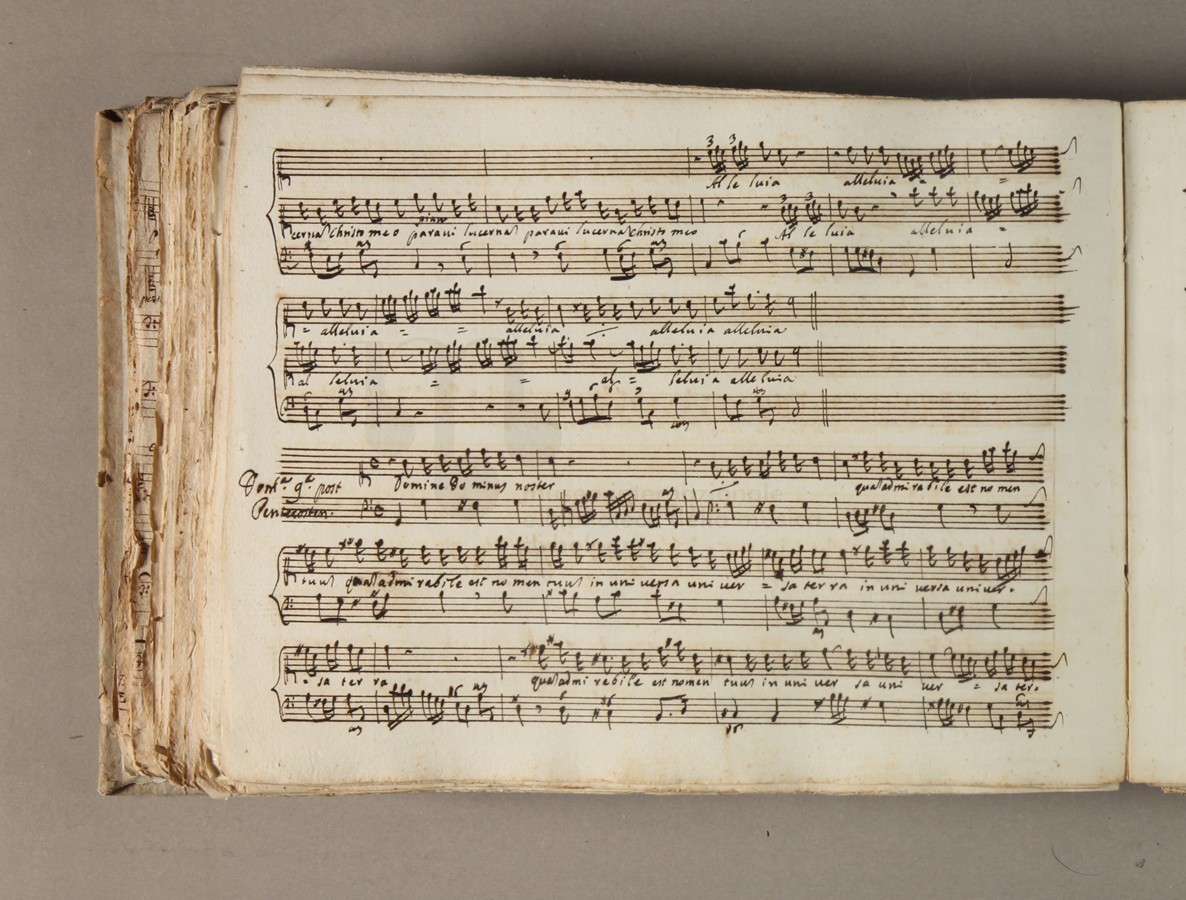 3 3
Al le luia alleluia =
piano
cerna Christo meo paravi lucerna paravi lucerna Christo meo Al le luia alleluia
= alleluia = = alleluia alleluia alleluia
al leluia = = al = leluia alleluia
Domca 9a post
Pentecosten.
Domine Dominus noster quam admirabile est nomen
tuum quam admirabile est nomen tuum in universa univer = sa terra in universa univer.
= sa terra quam admirabile est nomen tuum in univer sa univer = sa ter.